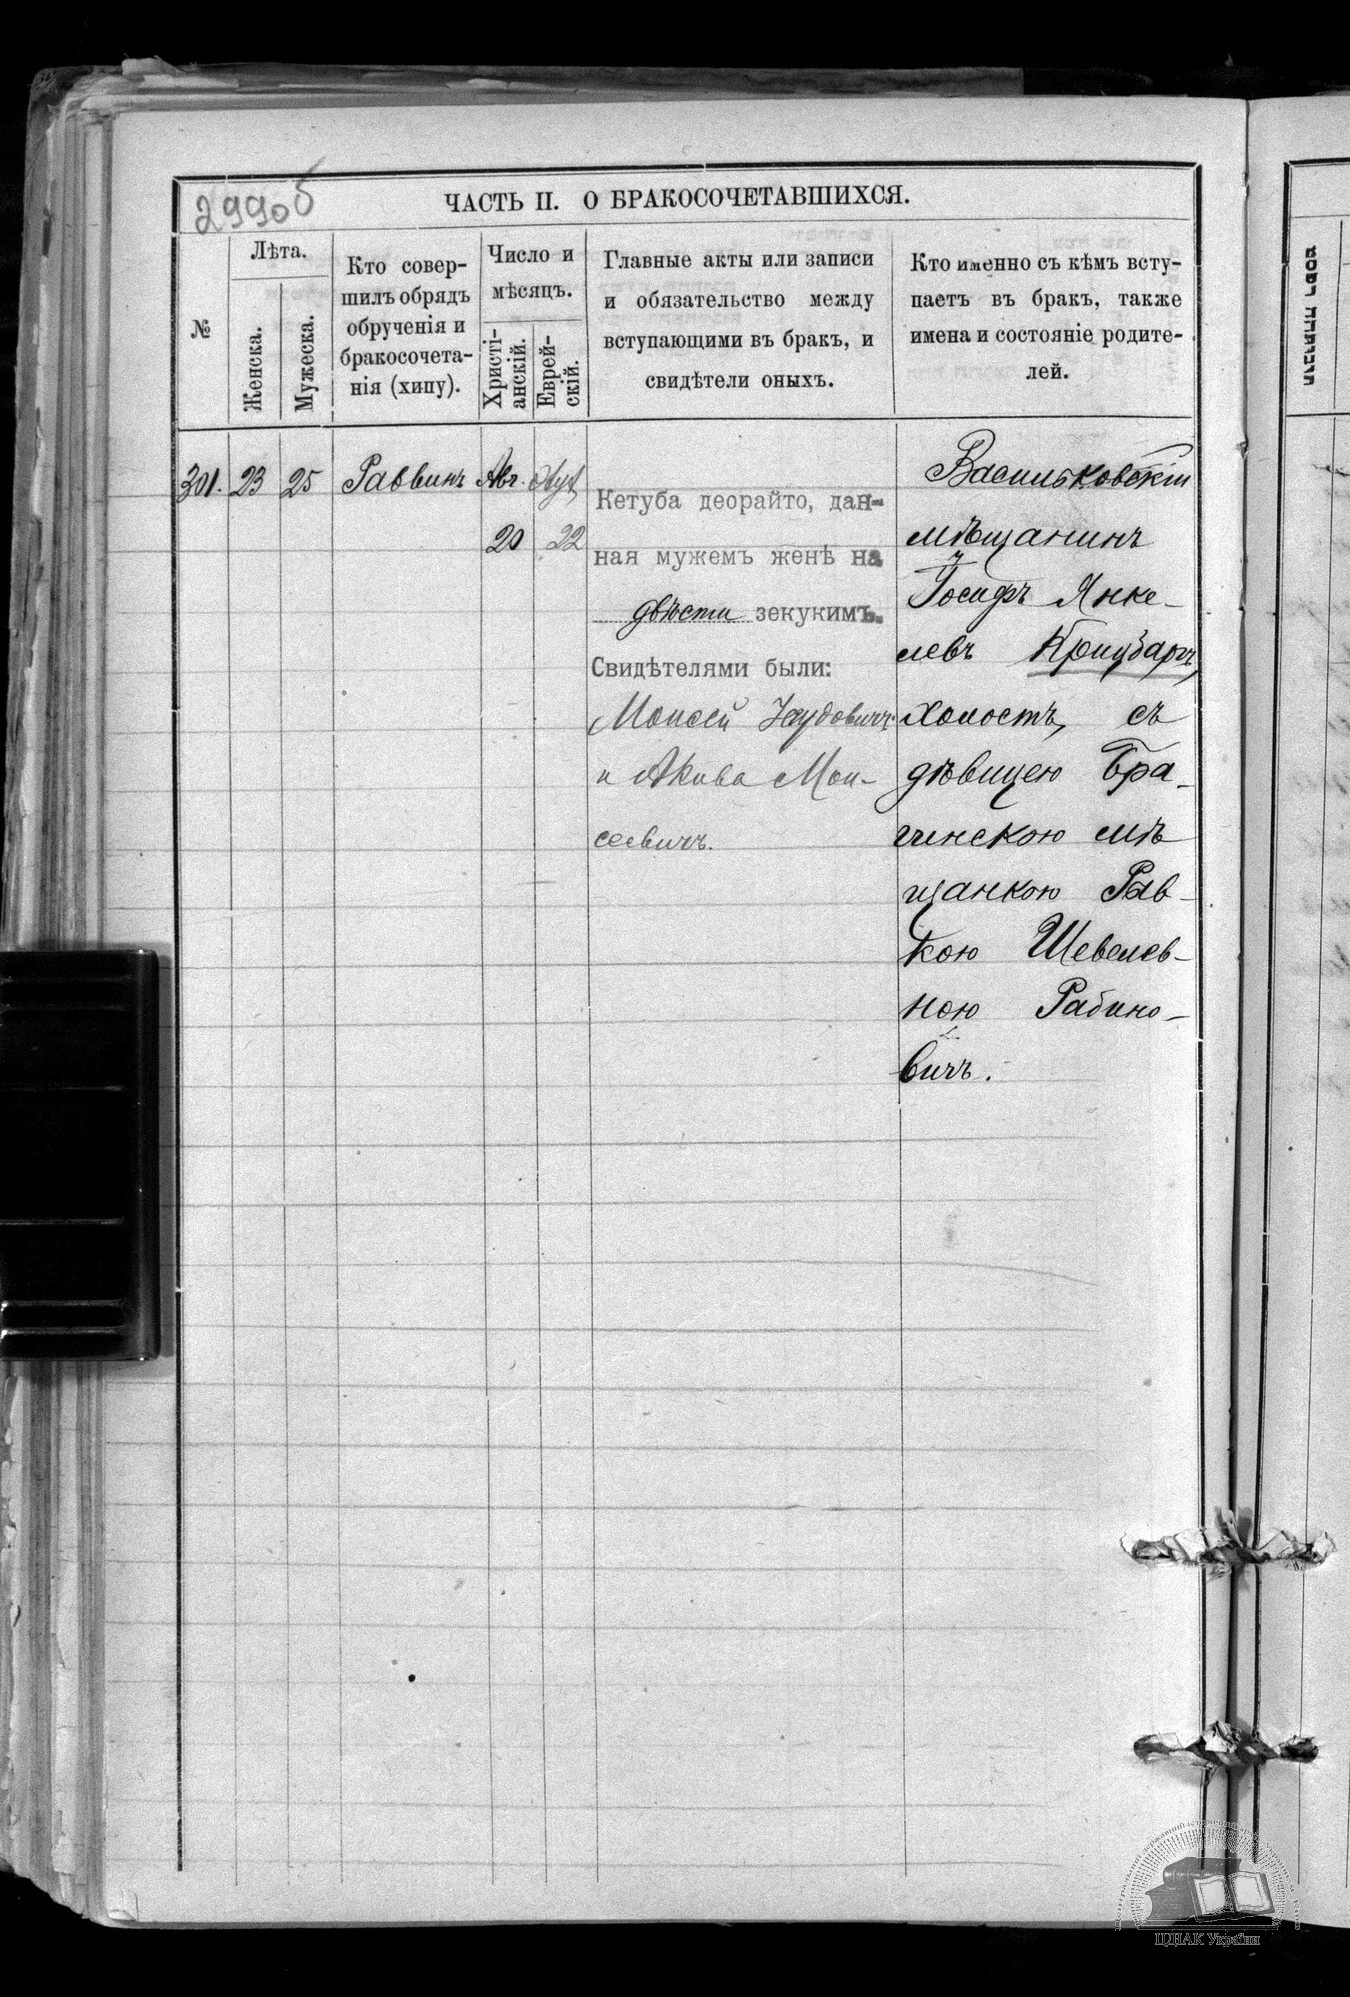 299об
ЧАСТЬ II. О БРАКОСОЧЕТАВШИХСЯ.
№
Лѣта.
Женска.
Мужеска.
Кто совер-
шилъ обрядъ
обрученія и
бракосочета-
нія (хипу).
Число и
мѣсяцъ.
Христі-
анскій.
Еврей-
скій.
Главные акты или записи
и обязательство между
вступающими въ бракъ, и
свидѣтели оныхъ.
Кто именно съ кѣмъ всту-
паетъ въ бракъ, также
имена и состояніе родите-
лей.
301. 23 25 Раввинъ Авг.
20 22
Кетуба деорайто, дан-
ная мужемъ женѣ на
двѣсти зекукимъ.
Свидѣтелями были:
Моисей
и Акива Мои-
сеевичъ.
Васильковскій
мѣщанинъ
Іосифъ Янке-
левъ Крицбаръ,
холостъ, съ
дѣвицею Бра-
гинскою мѣ
щанкою Рав-
кою Шевелев-
ною Рабино-
вичъ.
ЦДІАК України